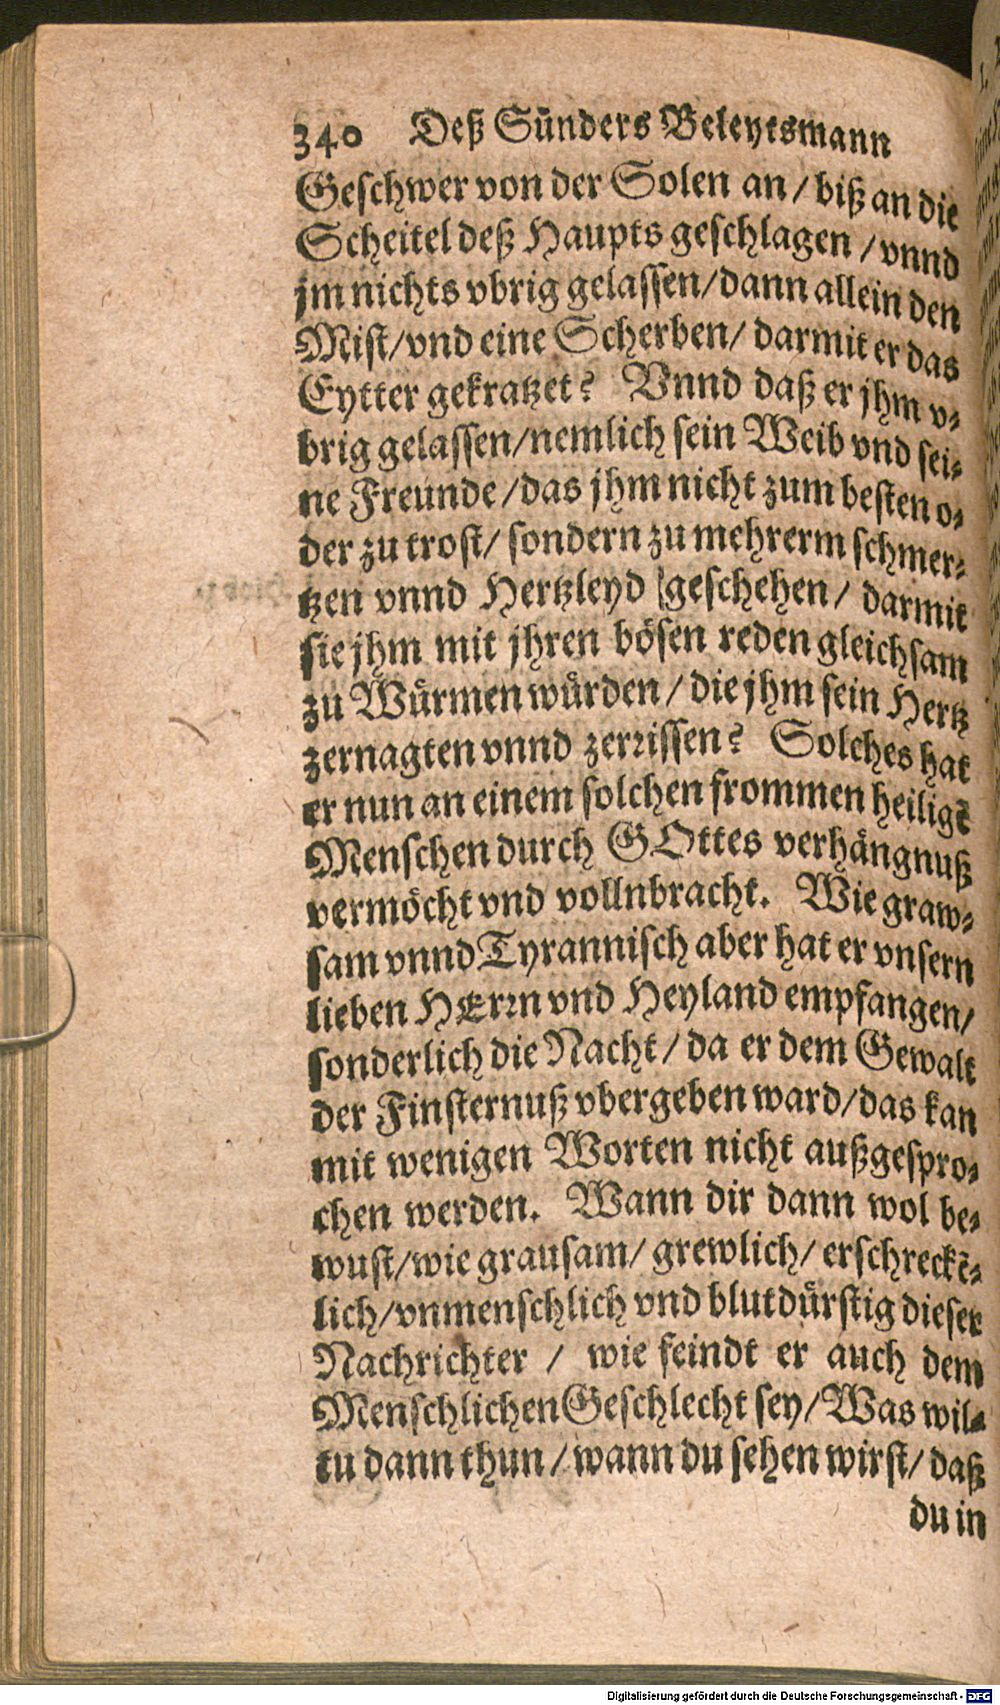 340 Deß Sünders Beleytsmann
Geschwer von der Solen an / biß an die
Scheitel deß Haupts geschlagen / vnnd
jm nichts vbrig gelassen/dann allein den
Mist/vnd eine Scherben/ darmit er das
Eytter gekratzet? Vnnd daß er jhm v-
brig gelassen/nemlich sein Weib vnd sei-
ne Freunde/das jhm nicht zum besten o-
der zu trost/ sondern zu mehrerm schmer-
tzen vnnd Hertzleyd geschehen/ darmit
sie jhm mit jhren bösen reden gleichsam
zu Würmen würden / die jhm sein Hertz
zernagten vnnd zerrissen? Solches hat
er nun an einem solchen frommen heiligē
Menschen durch GOttes verhängnuß
vermöcht vnd vollnbracht. Wie graw-
sam vnnd Tyrannisch aber hat er vnsern
lieben HErrn vnd Heyland empfangen/
sonderlich die Nacht / da er dem Gewalt
der Finsternuß vbergeben ward/das kan
mit wenigen Worten nicht außgespro-
chen werden. Wann dir dann wol be-
wust/wie grausam/ grewlich/ erschreckē-
lich/vnmenschlich vnd blutdürstig dieser
Nachrichter / wie feindt er auch dem
Menschlichen Geschlecht sey/Was wil-
tu dann thun / wann du sehen wirst/ daß
du in
Digitalisierung gefördert durch die Deutsche Forschungsgemeinschaft - DFG